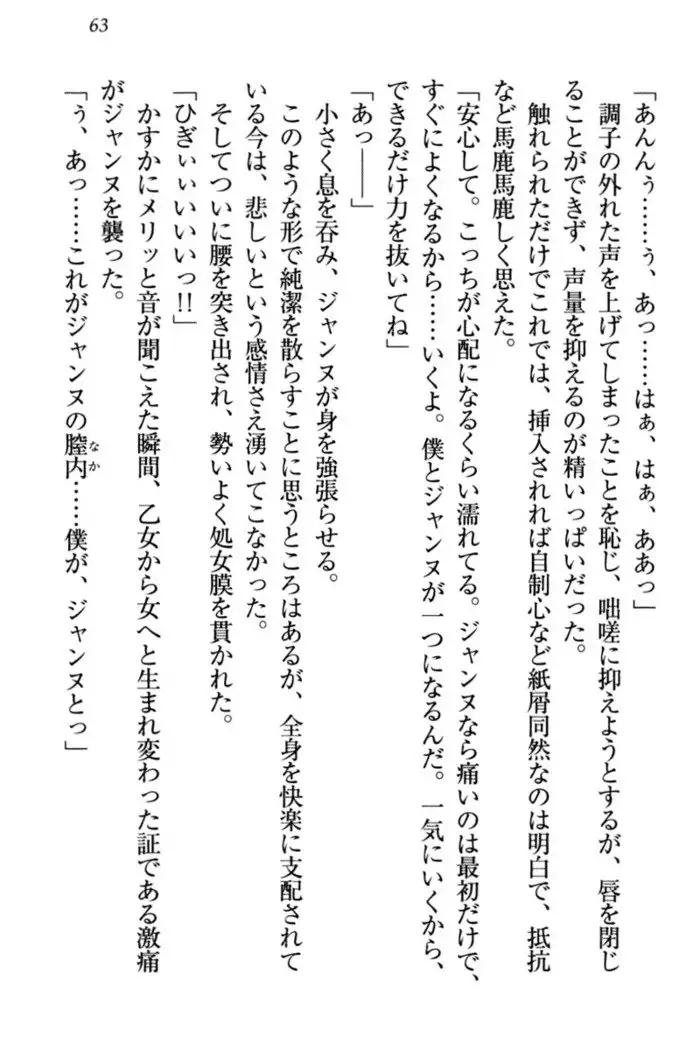 63
「あんんぅ……ぅ、あっ……はぁ、はぁ、ああっ」
調子の外れた声を上げてしまったことを恥じ、咄嗟に抑えようとするが、唇を閉じ
ることができず、声量を抑えるのが精いっぱいだった。
触れられただけでこれでは、挿入されれば自制心など紙屑同然なのは明白で、抵抗
など馬鹿馬鹿しく思えた。
「安心して。こっちが心配になるくらい濡れてる。ジャンヌなら痛いのは最初だけで、
すぐによくなるから……いくよ。僕とジャンヌが一つになるんだ。一気にいくから、
できるだけ力を抜いてね」
「あっ――」
小さく息を呑み、ジャンヌが身を強張らせる。
このような形で純潔を散らすことに思うところはあるが、全身を快楽に支配されて
いる今は、悲しいという感情さえ湧いてこなかった。
そしてついに腰を突き出され、勢いよく処女膜を貫かれた。
「ひぎぃぃいいいっ!!」
かすかにメリッと音が聞こえた瞬間、乙女から女へと生まれ変わった証である激痛
がジャンヌを襲った。
「ぅ、あっ……これがジャンヌの膣内なか……僕が、ジャンヌとっ」